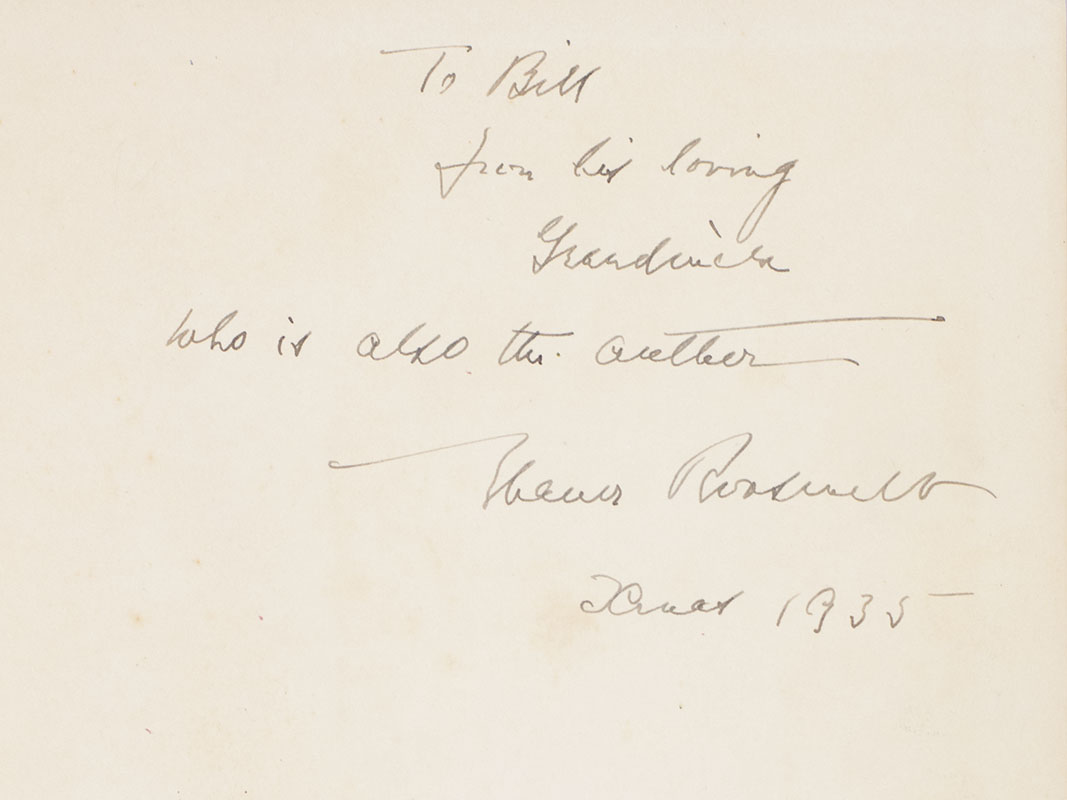 To Bill
from his loving
Grandmère
who is also the author
Eleanor Roosevelt
Xmas 1935